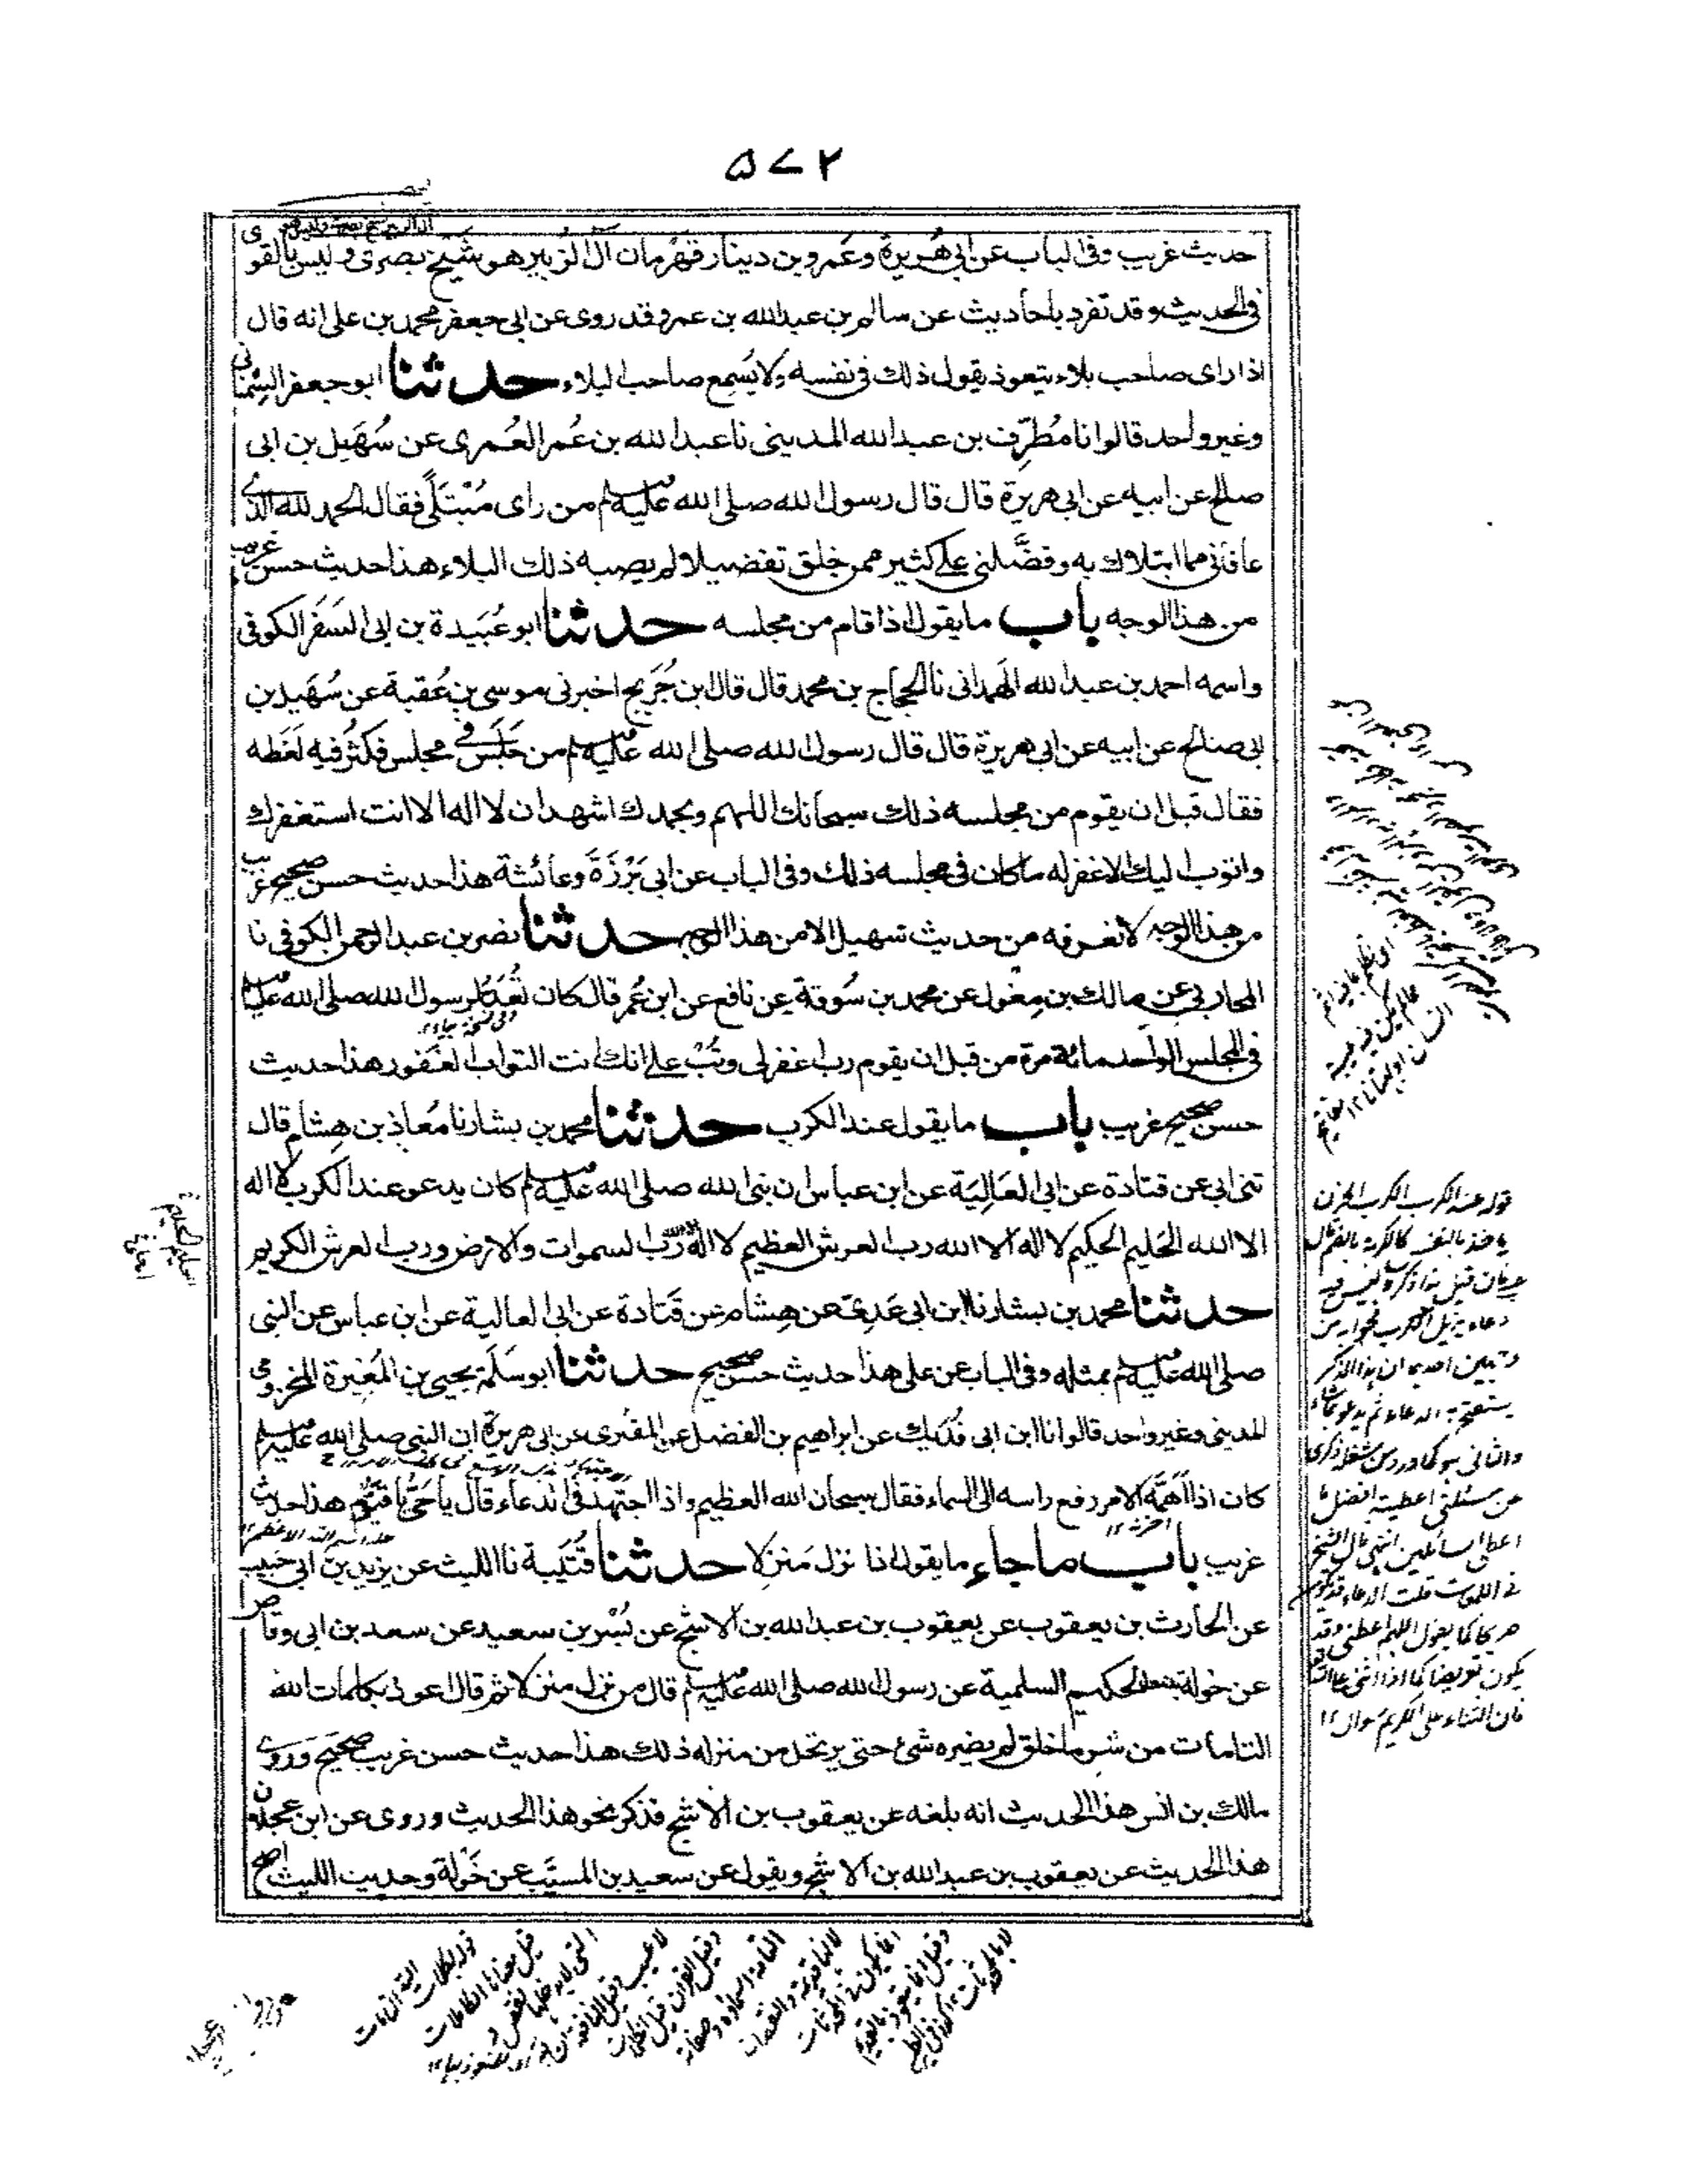 ۵۷۲
حديث غريب وفى الباب عن ابى هُريرة وعَمرو بن دينار قهرمان آل الزبير هو شَيخ بصرى وليس بالقوى
فى الحديث وقد تفرد باحاديث عن سالم بن عبدالله بن عمر وقد روى عن ابى جعفر محمد بن على انه قال
اذا راى صاحب بلاء يتعوذ يقول ذلك فى نفسه ولا يُسمِع صاحب البلاء حدثنا ابو جعفر السِّمنانى
وغير واحد قالوا نا مُطرِّف بن عبدالله المدينى نا عبدالله بن عُمر العُمرى عن سُهَيل بن ابى
صالح عن ابيه عن ابى هريرة قال قال رسول الله صلى الله عليه وسلم من راى مُبْتَلًى فقال الحمد لله الذى
عافانى مما ابتلاك به وفضَّلنى على كثير ممن خلق تفضيلا لم يصبه ذلك البلاء هذا حديث حسن غريب
من هذا الوجه باب ما يقول اذا قام من مجلسه حدثنا ابو عُبَيدة بن ابى السَفَر الكوفى
واسمه احمد بن عبدالله الهَمدانى نا الحجاج بن محمد قال قال ابن جُرَيج اخبرنى موسى بن عُقبة عن سُهَيل بن
ابى صالح عن ابيه عن ابى هريرة قال قال رسول الله صلى الله عليه وسلم من جَلَسَ فى مجلس فكثُر فيه لَغَطه
فقال قبل ان يقوم من مجلسه ذلك سبحانك اللهم وبحمدك اشهد ان لا اله الا انت استغفرك
واتوب اليك الا غفر له ما كان فى مجلسه ذلك وفى الباب عن ابى بَرْزَةَ وعائشة هذا حديث حسن صحيح غريب
من هذا الوجه لا نعرفه من حديث سهيل الا من هذا الوجه حدثنا نصر بن عبد الرحمن الكوفى نا
المحاربى عن مالك بن مِغْول عن محمد بن سُوقة عن نافع عن ابن عُمر قال كان تُعَدُّ لرسول الله صلى الله عليه وسلم
فى المجلس الواحد مائة مرة من قبل ان يقوم رب اغفر لى وتُبْ على انك انت التواب الغَفور هذا حديث
حسن صحيح غريب باب ما يقول عند الكرب حدثنا محمد بن بشار نا مُعاذ بن هِشام قال
ثنى ابى عن قتادة عن ابى العَالِيَة عن ابن عباس ان نبى الله صلى الله عليه وسلم كان يدعو عند الكرب لا اله
الا الله الحَليم الحكيم لا اله الا الله رب العرش العظيم لا اله الا الله رَبُّ السموات والارض ورب العرش الكريم
حدثنا محمد بن بشار نا ابن ابى عَدِىّ عن هِشام عن قَتادة عن ابى العالية عن ابن عباس عن النبى
صلى الله عليه وسلم بمثله وفى الباب عن على هذا حديث حسن صحيح حدثنا ابو سَلَمَة يحيى بن المُغِيرة المخزومى
المدينى وغير واحد قالوا نا ابن ابى فُدَيك عن ابراهيم بن الفضل عن المقبُرى عن ابى هريرة ان النبى صلى الله عليه وسلم
كان اذا اَهَمَّهُ الامر رفع راسه الى السماء فقال سبحان الله العظيم واذا اجتهد فى الدعاء قال يا حَىُّ يا قَيُّوم هذا حديث
غريب باب ما جاء ما يقول اذا نزل مَنزِلا حدثنا قُتَيبة نا الليث عن يزيد بن ابى حَبيب
عن الحارث بن يعقوب عن يعقوب بن عبدالله بن الاشج عن بُسْر بن سعيد عن سعد بن ابى وقاص
عن خولة بنت الحكيم السلمية عن رسول الله صلى الله عليه وسلم قال من نزل منزلا ثم قال اعوذ بكلمات الله
التامات من شر ما خلق لم يضره شئ حتى يرتحل من منزله ذلك هذا حديث حسن غريب صحيح وروى
مالك بن انس هذا الحديث انه بلغه عن يعقوب بن الاشج فذكر نحو هذا الحديث وروى عن ابن عجلان
هذا الحديث عن يعقوب بن عبدالله بن الاشج ويقول عن سعيد بن المسيَّب عن خَوْلة وحديث الليث اصح
قوله عند الكرب الكرب الحزن
ياخذ بالنفس كالكربة بالضم قال
فان قيل هذا ذكر وليس فيه
دعاء يزيل الكرب فجوابه من
وجهين احدهما ان هذا الذكر
يستفتح به الدعاء ثم يدعو بما شاء
والثانى هو كما ورد من شغله ذكرى
عن مسئلتى اعطيته افضل ما
اعطى السائلين انتهى قال الشيخ
فى اللمعات قلت الدعاء قد يكون
صريحا كما يقول اللهم اعطنى وقد
يكون تعريضا كما اذا اثنى على الله
فان الثناء على الكريم سوال ۱۲